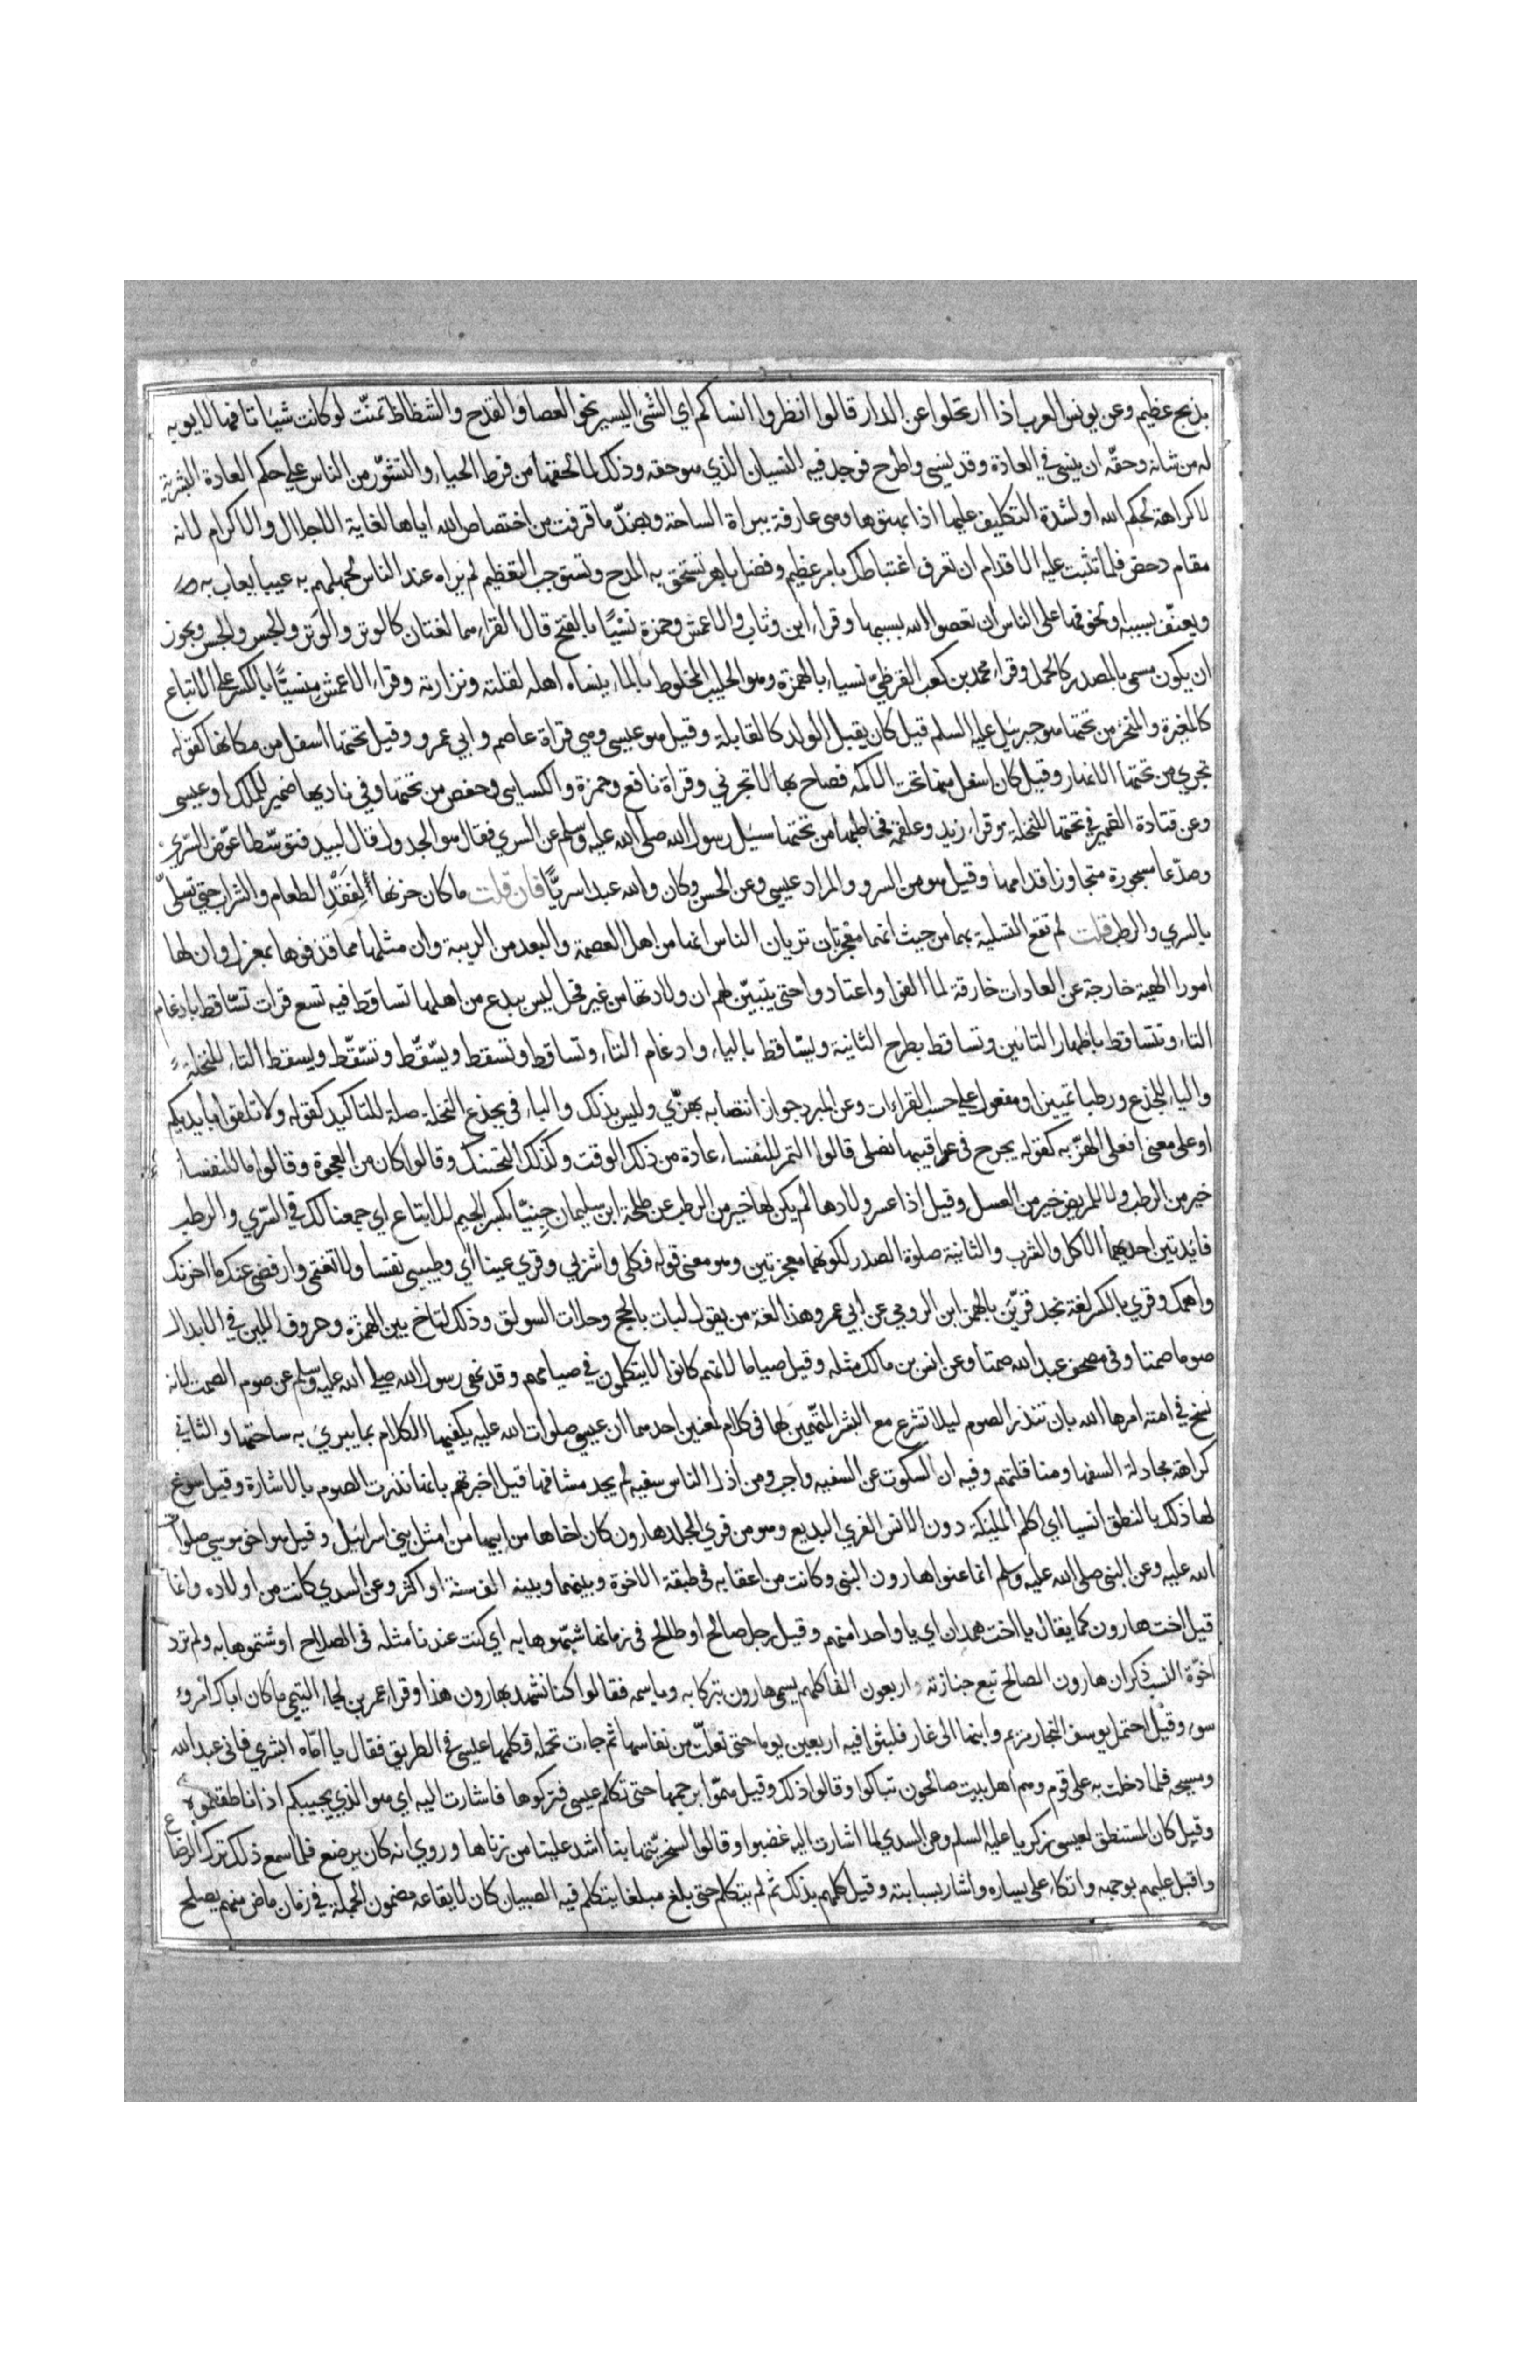 بذبح عظيم وعن يونس العرب اذا ارتحلوا عن الدار قالوا انظروا انساكم اي الشئ اليسير نحو العصا والقدح والشظاظ تمنّت لو كانت شيئا تافها لا يوبه
له من شانه وحقّه ان ينسي في العادة وقد ينسي واطرح فوجد فيه النسيان الذي هو حقه وذلك لما لحقها من فرط الحياء والتشوّر من الناس علي حكم العادة البشرية
لا كراهة لحكم الله او لشدة التكليف عليها اذا بهتوها وهي عارفة ببراة الساحة وبضدّ ما قرفت من اختصاص الله اياها لغاية الاجلال والاكرام لانه
مقام دحض فلما تثبت عليه الاقدام ان تعرف اغتباطك بامر عظيم وفضل باهر تستحق به المدح وتستوجب التعظيم ثم يراه عند الناس لجهلهم به عيبا يعاب به
ويعنّف بسببه او لخوفها على الناس ان تعصوا الله بسببها وقراء ابن وثاب والاعمش وحمزة نسْيًا بالفتح قال الفراء هما لغتان كالوتر والوَتر والجس والجس ويجوز
ان يكون مسمي بالمصدر كالحمل وقراء محمد بن كعب القرظيّ نسياء بالهمزة وهو الحليب المخلوط بالماء ينساه اهله لقلته ونزارته وقراء الاعمش مِنسيًّا بالكسر علي الاتباع
كالمغيرة والمنخر من تحتها هو جبرئيل عليه السلم قيل كان يقبل الولد كالقابلة وقيل هو عيسى وهي قراة عاصم وابي عمرو وقيل تحتها اسفل من مكانها كقوله
تجري من تحتها الانهار وقيل كان اسفل منها تحت الاكمة فصاح بها الا تحزني وقراة نافع وحمزة والكسايي وحفص من تحتها وفي ناديها ضمير الملك او عيسى
وعن قتادة الضمير في تحتها للنخلة وقراء زيد وعلقمة فخاطبها من تحتها سئيل رسول الله صلى الله عليه وسلم عن السري فقال هو الجدول قال لبيد فتوسّطا عرْض السّري
وصدّعا مسجورة متجاوزا قدامها وقيل هو من السرو والمراد عيسى وعن الحسن وكان والله عبدا سريًّا فان قلت ما كان حزنها لفَقْد الطعام والشراب حتي تسلّى
بالسري والرطب قلت لم تقع التسلية بهما من حيث انهما معجزتان تريان الناس انها من اهل العصمة والبعد من الريبة وان مثلها مما قذفوها بمعزل وان لها
امورا الهية خارجة عن العادات خارقة لما الفوا واعتادوا حتى يتبيّن لهم ان ولادتها من غير فحل ليس ببدع من اهلها تساقط فيه تسع قرات تسّاقط بادغام
التاء وتتساقط باظهار التائين وتساقط بطرح الثانية ويسّاقط بالياء وادغام التاء وتساقط وتسقط ويسّقّط وتسّقّط ويسقط التاء للنخلة
والياء للجذع ورطبا تمييز او مفعول علي حسب القراءات وعن المبرد جواز انتصابه بهزّي وليس بذلك والباء في بجذع النخلة صلة للتاكيد كقوله ولا تلقوا بايديكم
او على معنى افعلي الهزّ به كقوله يجرح في عراقيبها نصلي قالوا التمر للنفساء عادة من ذلك الوقت وكذلك التحنيك وقالوا كان من العجوة وقالوا ما للنفساء
خير من الرطب ولا للمريض خير من العسل وقيل اذا عسر ولادها لم يكن لها خير من الرطب عن طلحة ابن سليمان جِنيّا بكسر الجيم للابتاع اي جمعنا لك في السّري والرطب
فائدتين احديهما الاكل والشرب والثانية صلوة الصدر لكونهما معجزتين وهو معنى قوله فكلي واشربي وقري عينا اي وطيبي نفسا ولا تغتمي وارفضي عنك ما احزنك
واهمك وقري بالكسر لغة نجد فترئنّ بالهمز ابن الرومي عن ابي عمرو وهذا لغة من يقول لبات بالحج وحلات السوليق وذلك لتاخ بين الهمزة وحروف اللين في الابدال
صوما صمتا وفي مصحف عبد الله صمتا وعن انس بن مالك مثله وقيل صياما لانهم كانوا لا يتكلمون في صيامهم وقد نهى رسول الله صلى الله عليه وسلم عن صوم الصمت لانه
نسخ في امته امرها الله بان تنذر الصوم ليلا تشرع مع البشر المتّهمين لها في كلام لمعنين احدهما ان عيسى صلوات الله عليه يكفيها الكلام بما يبرئ به ساحتها والثاني
كراهة مجادلة السفها ومناقلتهم وفيه ان السكوت عن السفيه واجب ومن اذل الناس سفيه لم يجد مشافها قيل اخبرتهم بانها نذرت الصوم بالاشارة وقيل سوغ
لها ذلك بالنطق انسيا اي اكلم المليكة دون الانس الفري البديع وهو من فري الجلد هارون كان اخاها من ابيها من امثل بني اسرائيل وقيل هو اخو موسى صلوا
الله عليه وعن النبي صلى الله عليه وسلم انما عنوا هارون النبي وكانت من اعقابه في طبقة الاخوة وبينها وبينه الف سنة او اكثر وعن السدي كانت من اولاده وانما
قيل اخت هارون كما يقال يا اخت همدان اي يا واحدا منهم وقيل رجل صالح او طالح في زمانها شبّهوها به اي كنت عندنا مثله في الصلاح او شتموها به ولم ترد
اخوّة النسب ذكر ان هارون الصالح تبع جنازته اربعون الفا كلهم يسمى هارون تبركا به وباسمه فقالوا كنا نشبهك بهارون هذا وقراء عمر بن لجاء التيمي ما كان اباك امروء
سوء وقيل احتمل يوسف النجار مريم وابنها الى غار فلبثوا فيه اربعين يوما حتى تعلّت من نفاسها ثم جاءت تحمله فكلمها عيسى في الطريق فقال يا امّاه ابشري فاني عبد الله
ومسيحه فلما دخلت به على قوم وهم اهل بيت صالحون تباكوا وقالوا ذلك وقيل همّوا برجمها حتى تكلم عيسى فتركوها فاشارت اليه اي هو الذي يجيبكم اذا ناطقتموه
وقيل كان المستنطق لعيسى زكريا عليه السلم وعن السدي لما اشارت اليه غضبوا وقالوا لسخريّتها بنا اشد علينا من زناها وروي انه كان يرضع فلما سمع ذلك ترك الرضاع
واقبل عليهم بوجهه واتكاء على يساره واشار بسبابته وقيل كلمهم بذلك ثم لم يتكلم حتى بلغ مبلغا يتكلم فيه الصبيان كان لايقاعه مضمون الجملة في زمان ماض مبهم يصلح